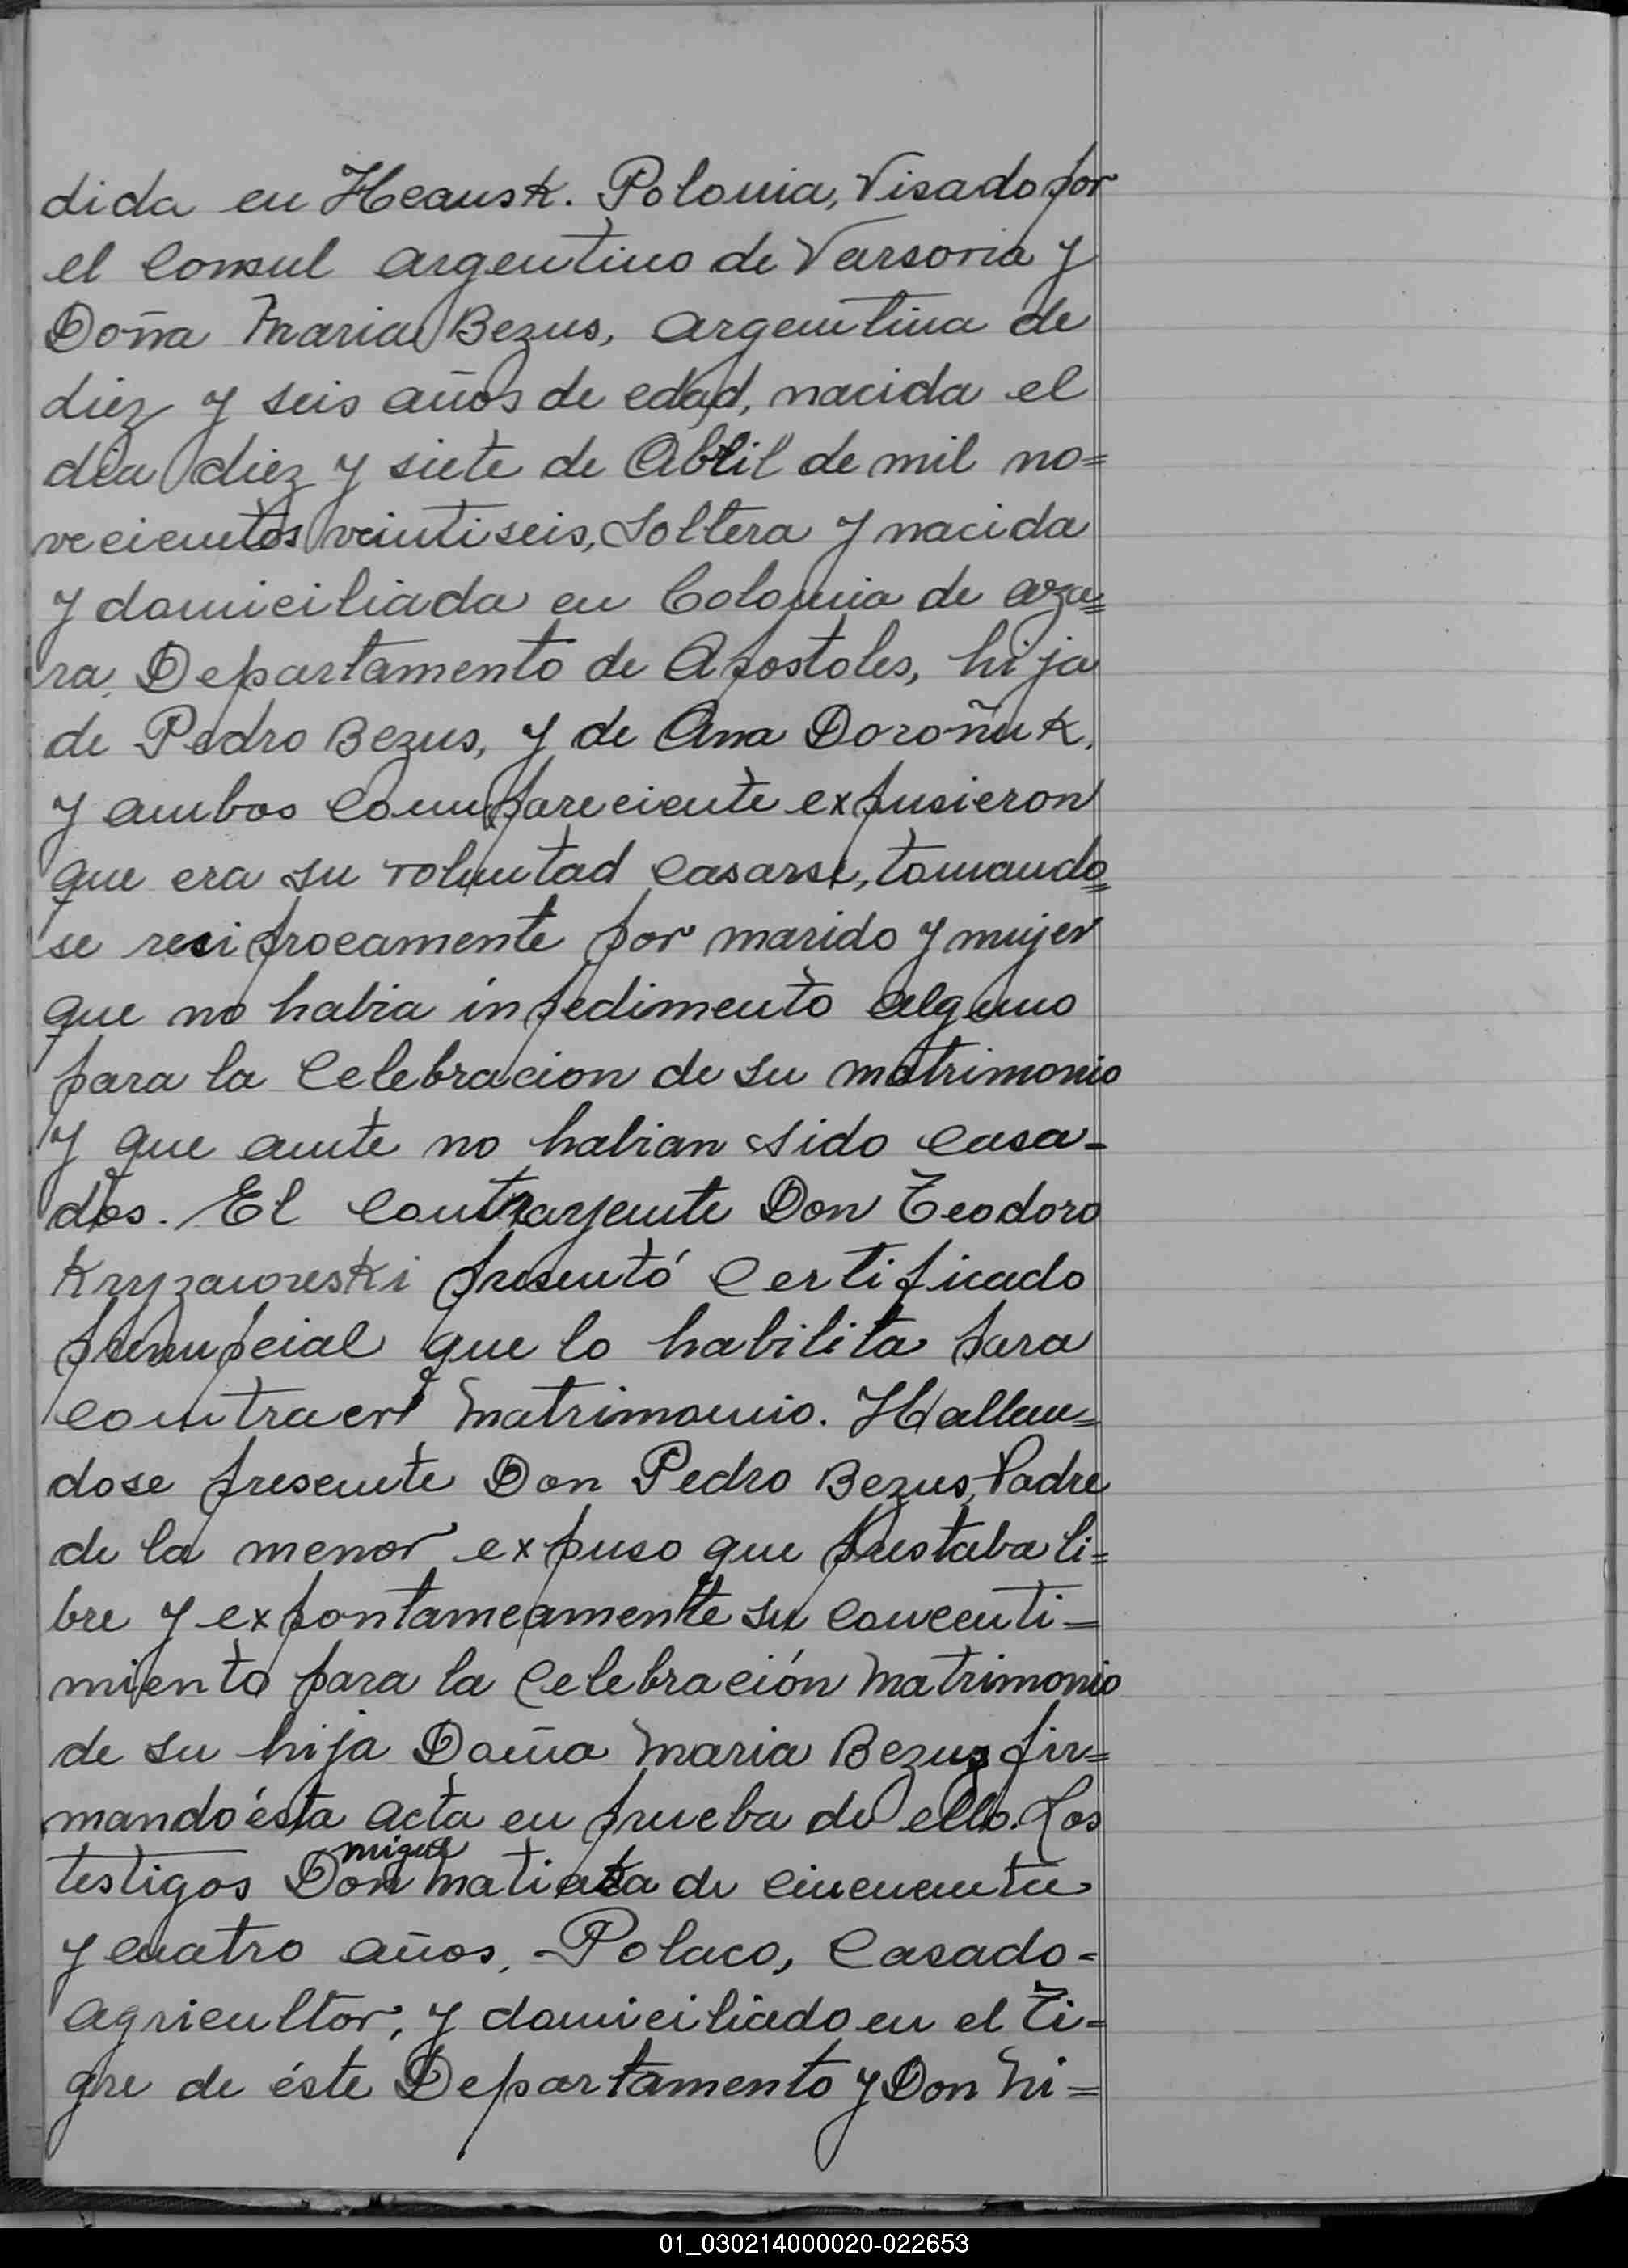 dida en Heansk. Polonia, Visado por
el Consul argentino de Varsovia y
Doña Maria Bezus, argentina de
diez y seis años de edad, nacida el
dia diez y siete de Abril de mil no=
vecientos veintiseis, Soltera y nacida
y domiciliada en Colonia de aza=
ra, Departamento de Apostoles, hija
de Pedro Bezus, y de Ana Doroñuk,
y ambos compareciente expusieron
que era su voluntad casarse, tomando=
se resiprocamente por marido y mujer
que no habia inpedimento alguno
para la celebracion de su matrimonio
y que ante no habian sido casa-
dos. El contrayente Don Teodoro
presentó Certificado
prenupcial que lo habilita para
contraer matrimonio. Hallan=
dose presente Don Pedro Bezus, Padre
de la menor expuso que prestaba li=
bre y expontameamente su concenti=
miento para la Celebración matrimonio
de su hija Doña Maria Bezus fir=
mando ésta acta en prueba de ello. Los
miguel
testigos Don de cincuenta
y cuatro años, Polaco, Casado-
agricultor, y domiciliado en el Ti=
gre de éste Departamento y Don Ni=
01_030214000020-022653